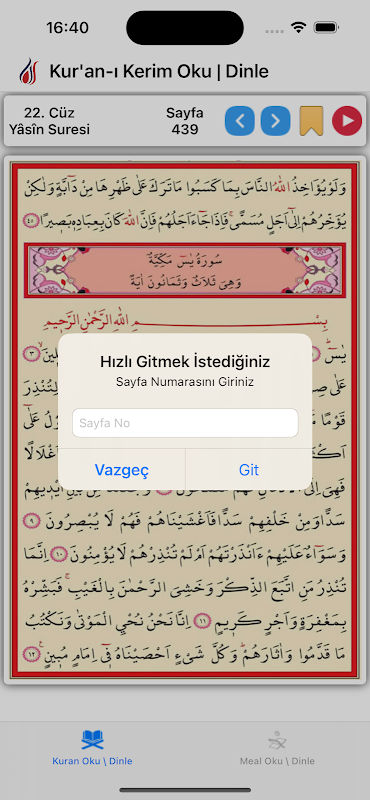 16:40
Kur'an-ı Kerim Oku | Dinle
22. Cüz
Yâsîn Suresi
Sayfa
439
وَلَوْ يُؤَاخِذُ اللّٰهُ النَّاسَ بِمَا كَسَبُوا مَا تَرَكَ عَلٰى ظَهْرِهَا مِنْ دَٓابَّةٍ وَلٰكِنْ
يُؤَخِّرُهُمْ اِلٰٓى اَجَلٍ مُسَمًّىۚ فَاِذَا جَٓاءَ اَجَلُهُمْ فَاِنَّ اللّٰهَ كَانَ بِعِبَادِهٖ بَصٖيراً ٤٥
سُورَةُ يٰسٓ مَكِّيَّةٌ
وَهِيَ ثَلَاثٌ وَثَمَانُونَ اٰيَةً
بِسْمِ اللّٰهِ الرَّحْمٰنِ الرَّحٖيمِ
يٰسٓ
٣
Hızlı Gitmek İstediğiniz
Sayfa Numarasını Giriniz
Sayfa No
Vazgeç
Git
سَداًّ وَمِنْ خَلْفِهِمْ سَداًّ فَاَغْشَيْنَاهُمْ فَهُمْ لَا يُبْصِرُونَ ٩
وَسَوَٓاءٌ عَلَيْهِمْ ءَاَنْذَرْتَهُمْ اَمْ لَمْ تُنْذِرْهُمْ لَا يُؤْمِنُونَ ١٠ اِنَّمَا
تُنْذِرُ مَنِ اتَّبَعَ الذِّكْرَ وَخَشِيَ الرَّحْمٰنَ بِالْغَيْبِۚ فَبَشِّرْهُ
بِمَغْفِرَةٍ وَاَجْرٍ كَرٖيمٍ ١١ اِنَّا نَحْنُ نُحْيِ الْمَوْتٰى وَنَكْتُبُ
مَا قَدَّمُوا وَاٰثَارَهُمْۜ وَكُلَّ شَيْءٍ اَحْصَيْنَاهُ فٖٓي اِمَامٍ مُبٖينٍ ١٢
Kuran Oku \ Dinle
Meal Oku \ Dinle